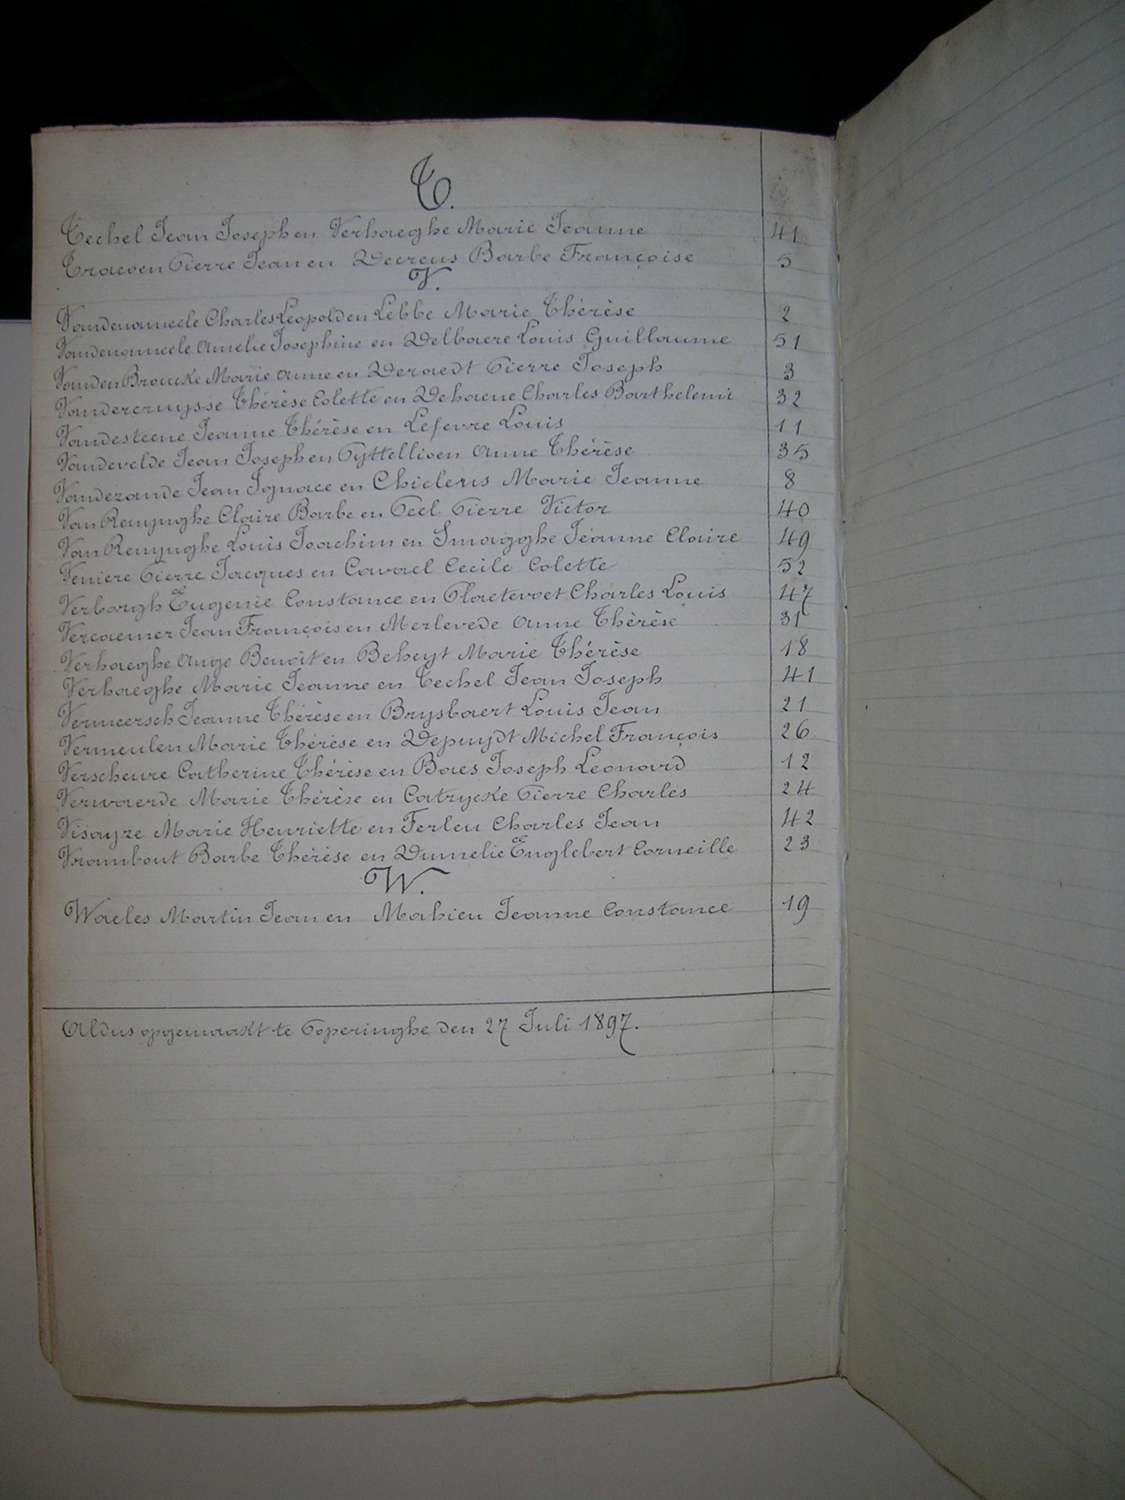 T.
Techel Jean Joseph en Verhaeghe Marie Jeanne 41
Traeven Pierre Jean en Decreus Barbe Françoise 5
V.
Vandenameele Charles Leopold en Lebbe Marie Thérèse 2
Vandenameele Amelie Josephine en Delbaere Louis Guillaume 51
Vanden Broucke Marie Anne en Deraedt Pierre Joseph 3
Vandercruysse Thérèse Colette en Dehaene Charles Barthelemi 32
Vandesteene Jeanne Thérèse en Lefevre Louis 11
Vandevelde Jean Joseph en Pyttellioen Anne Thérèse 35
Vandezande Jean Ignace en Chielens Marie Jeanne 8
Van Renynghe Claire Barbe en Peel Pierre Victor 40
Van Renynghe Louis Joachim en Smagghe Jeanne Claire 49
Veniere Pierre Jacques en Cavael Cecile Colette 52
Verbargh Eugenie Constance en Plaetevoet Charles Louis 47
Vercaemer Jean François en Merlevede Anne Thérèse 31
Verhaeghe Ange Benoit en Beheyt Marie Thérèse 18
Verhaeghe Marie Jeanne en Techel Jean Joseph 41
Vermeersch Jeanne Thérèse en Brysbaert Louis Jean 21
Vermeulen Marie Thérèse en Depuydt Michel François 26
Verscheure Catherine Thérèse en Baes Joseph Leonard 12
Verwaerde Marie Thérèse en Catrycke Pierre Charles 24
Visayze Marie Henriette en Ferleu Charles Jean 42
Vrombout Barbe Thérèse en Dumelie Englebert Corneille 23
W.
Waeles Martin Jean en Mahieu Jeanne Constance 19
Aldus opgemaakt te Poperinghe, den 27 Juli 1897.